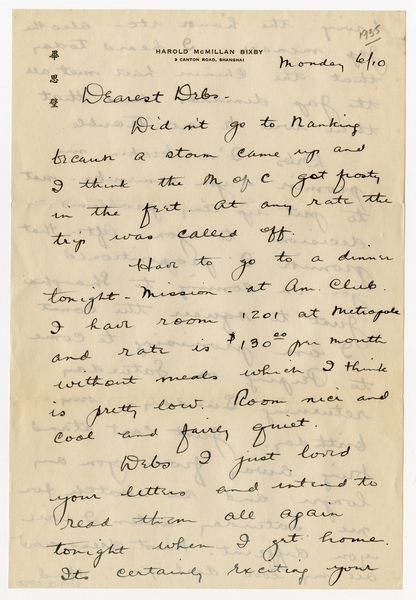 1935
畢
思
璧
HAROLD McMILLAN BIXBY
3 CANTON ROAD, SHANGHAI
Monday 6/10
Dearest Debs-
Didn't go to Nanking
because a storm came up and
I think the M of C got frosty
in the feet. At any rate the
trip was called off.
Have to go to a dinner
tonight - Mission - at Am. Club.
I have room 1201 at Metropole
and rate is $130.00 per month
without meals which I think
is pretty low. Room nice and
cool and fairly quiet.
Debs I just loved
your letters and intend to
read them all again
tonight when I get home.
Its certainly exciting your